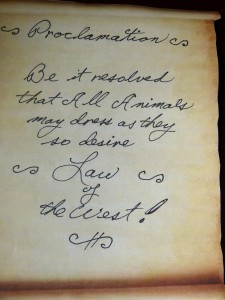 Proclamation
Be it resolved
that All Animals
may dress as they
so desire
Law
of
the West!